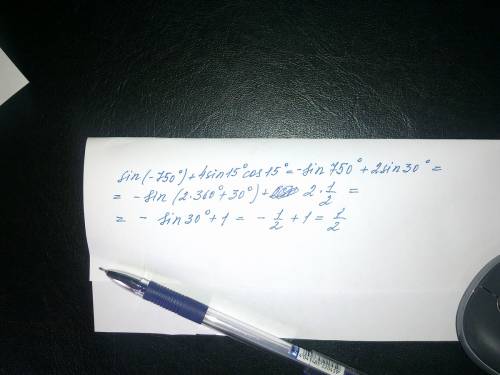 sin(-750°)+4sin15°cos15°=-sin750°+2sin30°=
= -sin(2·360°+30°)+ 2·1/2 =
= - sin30°+1 = -1/2+1=1/2